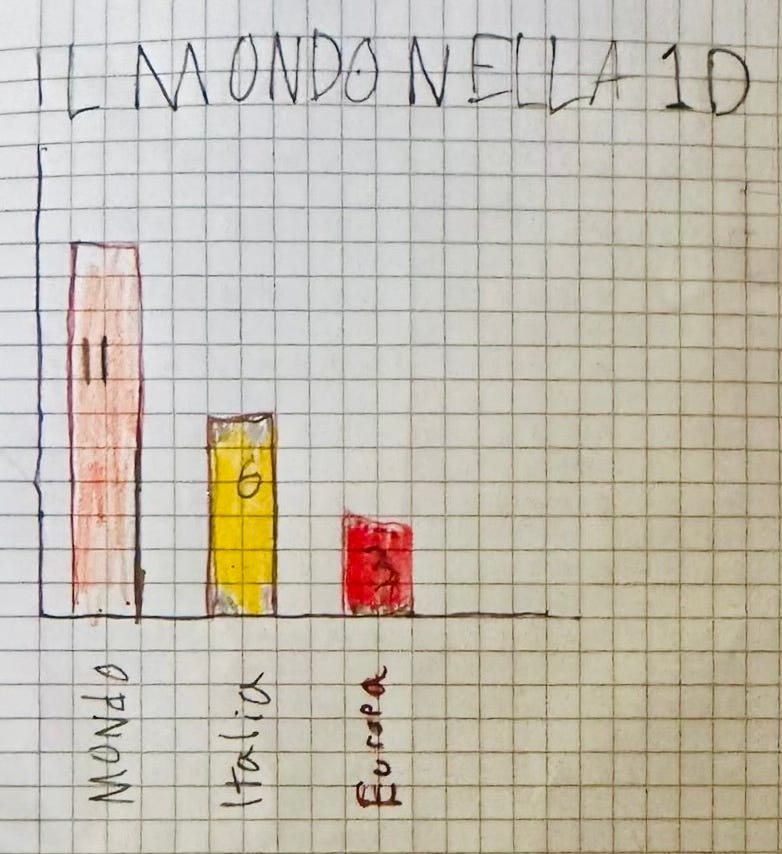 IL MONDO NELLA 1D
11
6
3
MONdO
Italia
Europa